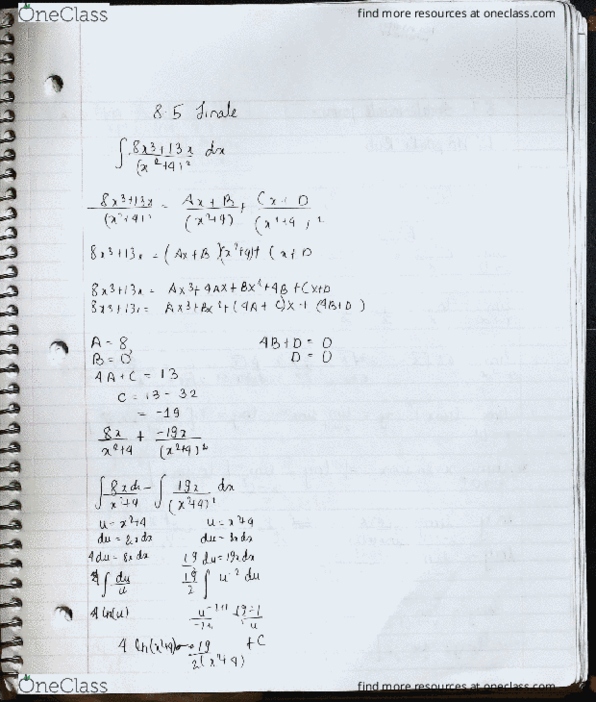 OneClass
find more resources at oneclass.com
8.5 Finale
∫ 8x3+13x / (x²+4)² dx
8x3+13x / (x²+4)² = Ax+B / (x²+4) + Cx+D / (x²+4)²
8x3+13x = (Ax+B)(x²+4)+ Cx+D
8x3+13x = Ax3+4Ax+Bx²+4B+Cx+D
8x3+13x = Ax3+Bx²+(4A+C)x+(4B+D)
A = 8, 4B+D = 0
B = 0 D = 0
4A+C = 13
C = 13-32
= -19
8x / x²+4 + -19x / (x²+4)²
∫ 8xdx / x²+4 - ∫ 19x / (x²+4)² dx
u = x²+4 u = x²+4
du = 2xdx du = 2xdx
4du = 8xdx 19/2 du = 19xdx
4∫ du/u 19/2 ∫ u-2 du
4 ln(u)
4 ln(x²+4) 19 / 2(x²+4) +C
OneClass
find more resources at oneclass.com